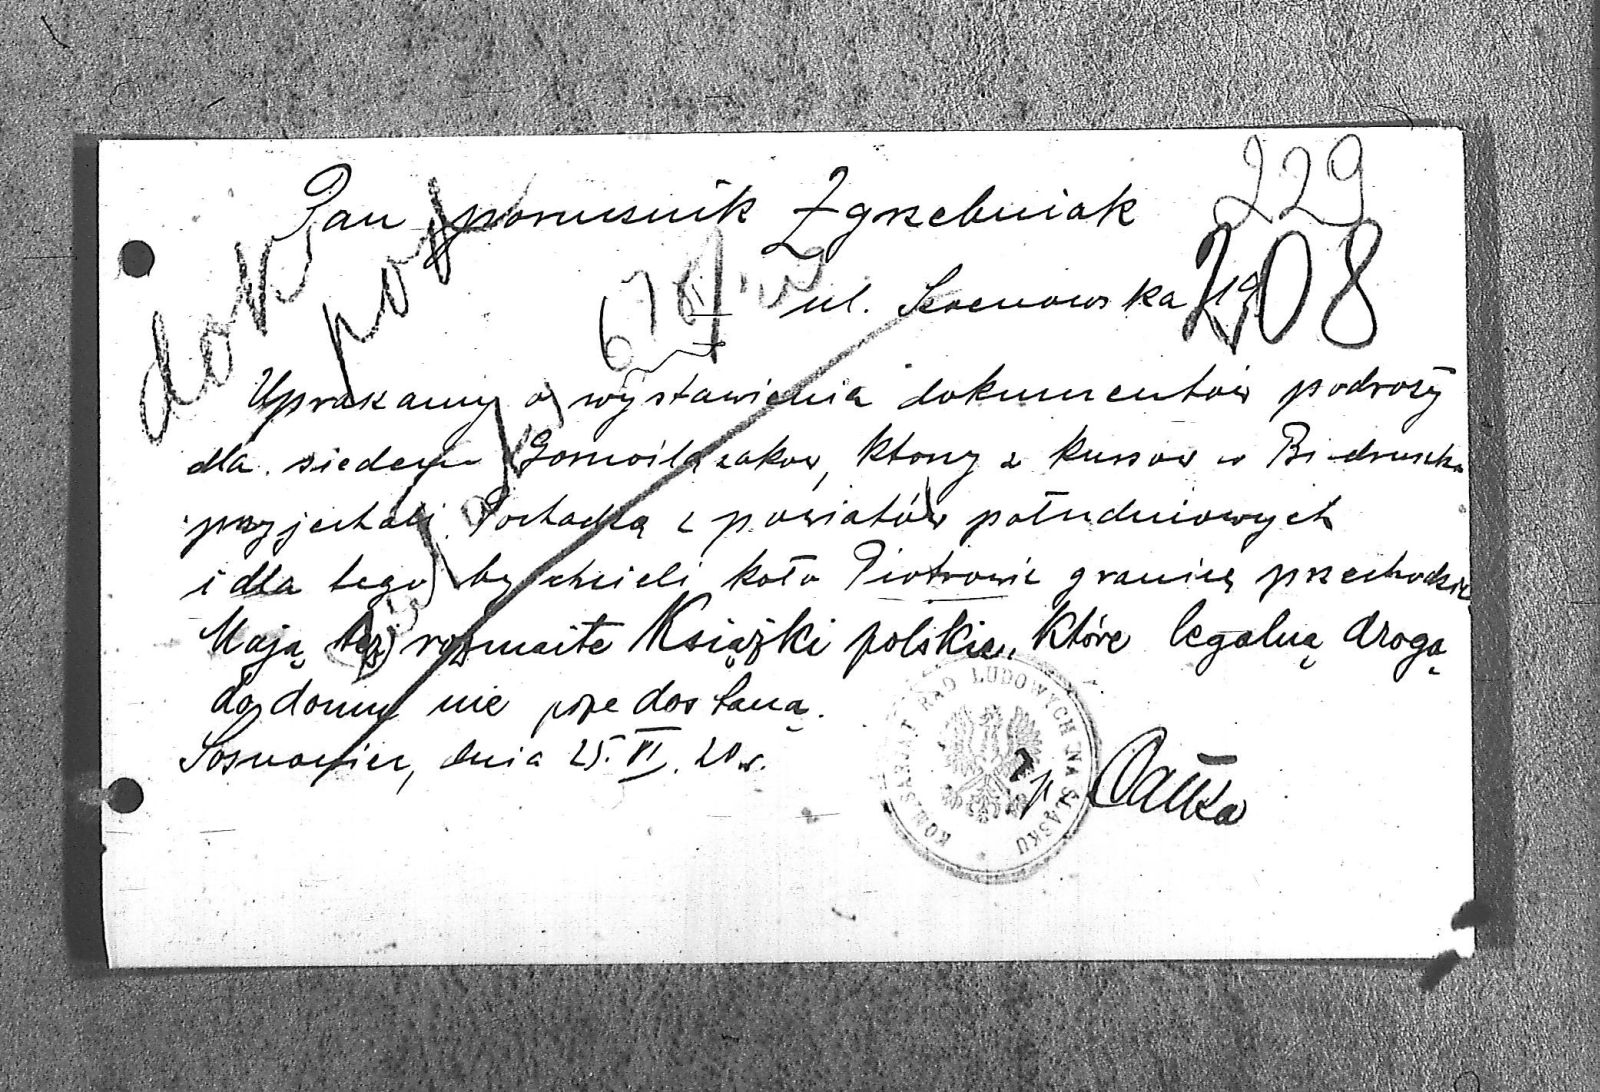 229
Pan porucznik Zgrzebniak
208
ul. 19
dok
pod
678
Upraszamy o wystawienia dokumentów podroży
dla siedem Gornoslązakow, ktorzy z kursow w Biedrusku
przyjechali. Pochadzą z powiatów południowych
i dla tego by chcieli koło Piotrowic granicę przechodzić.
Mają też rozmaite Książki polskie, które legalną drogą
do domu nie przedostaną.
Sosnowiec, dnia 25. VI. 20 r.
KOMISARJAT RAD LUDOWYCH NA ŚLĄSKU